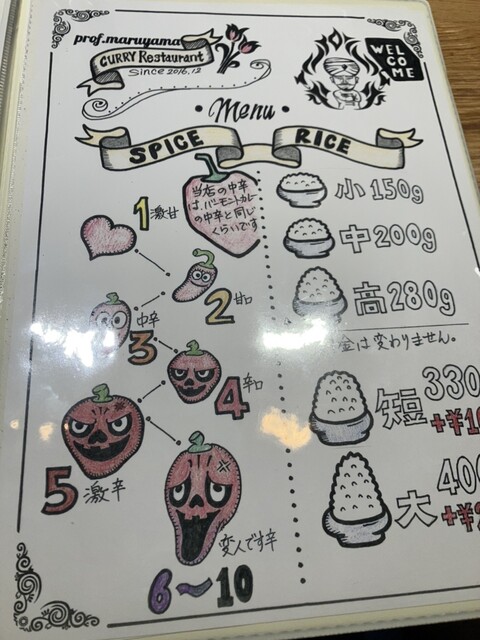 prof.maruyama
CURRY Restaurant
Since 2016.12
WELCOME
・Menu・
SPICE RICE
当店の中辛
は、バーモントカレー
の中辛と同じ
くらいです
1 激甘
2 甘口
中辛
3
4 辛口
5 激辛
変人です辛
6〜10
小 150g
中 200g
高 280g
金は変わりません。
短 330
+¥1
大 400
+¥